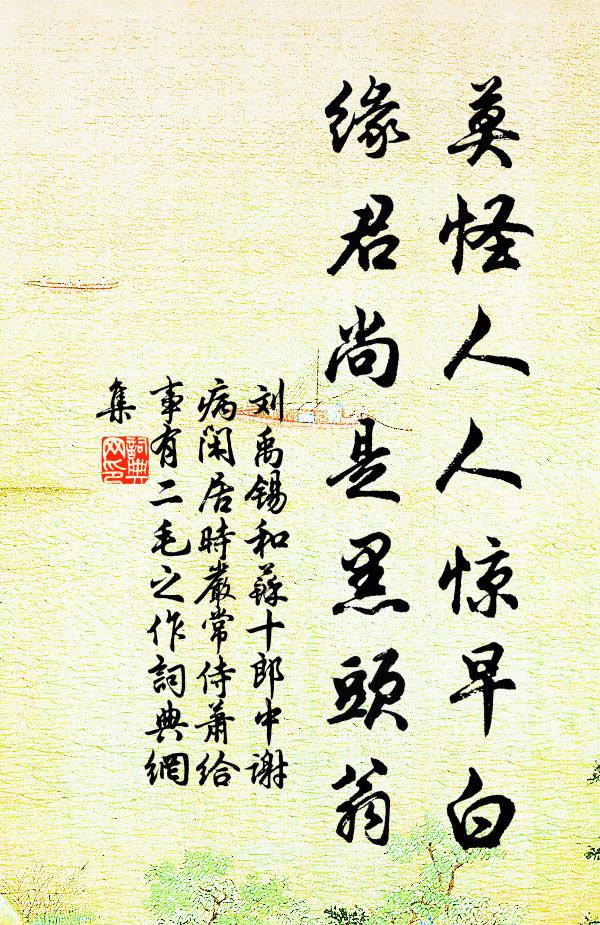 莫怪人人惊早白
缘君尚是黑頭翁
刘禹锡和蘇十郎中谢
病闲居時嚴常侍萧给
事有二毛之作詞典網
集
詞典
网印